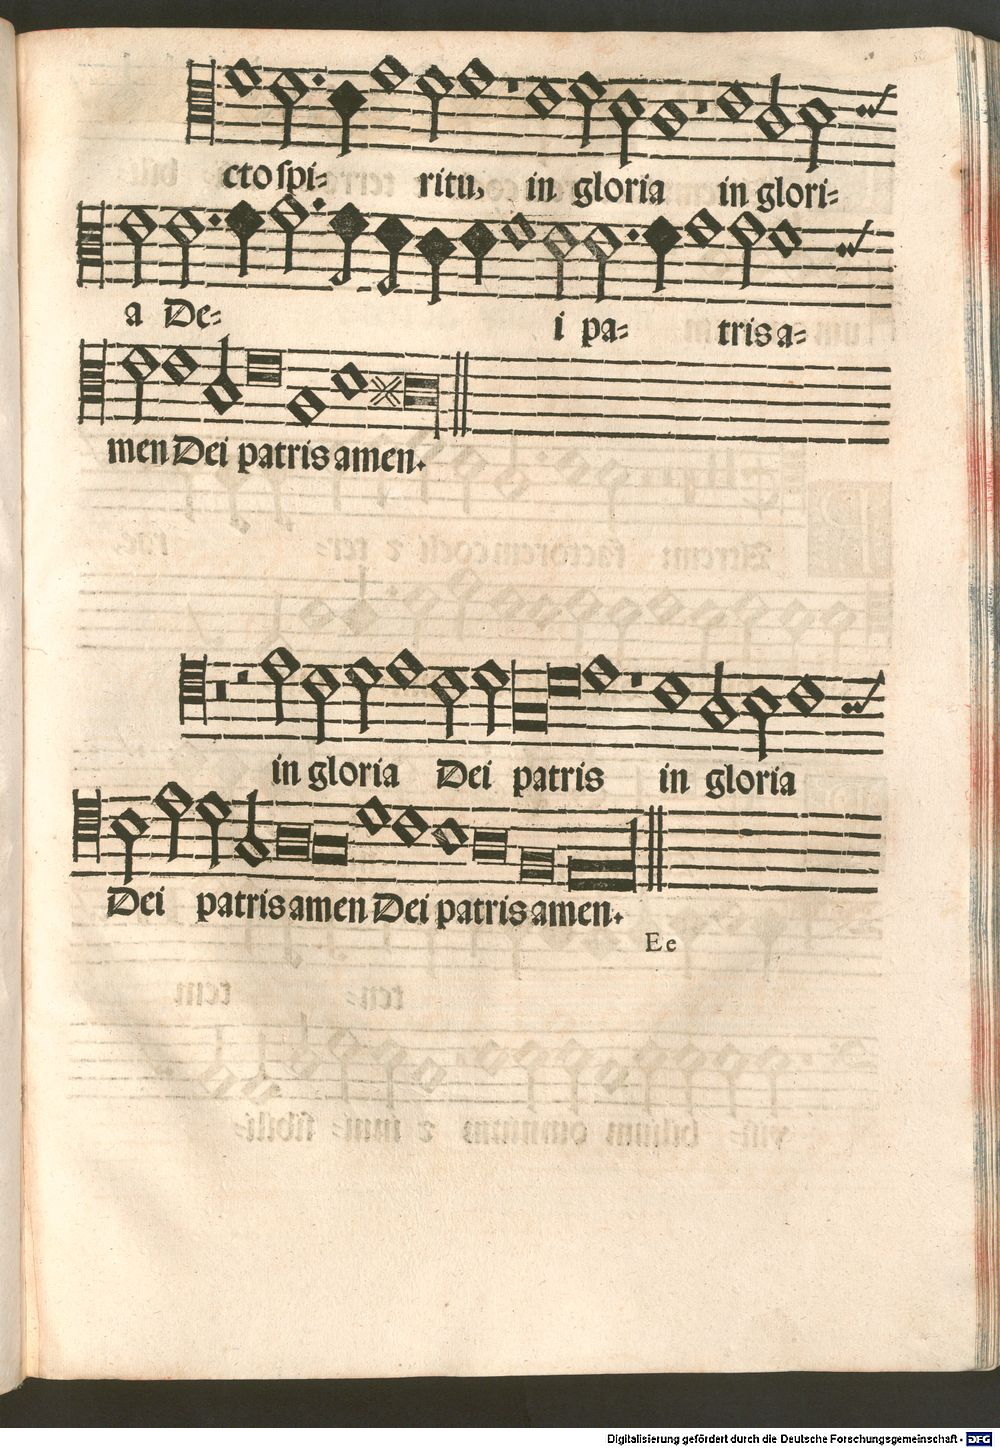 cto spi- ritu, in gloria in glori-
a De- i pa- tris a-
men Dei patris amen.
in gloria Dei patris in gloria
Dei patris amen Dei patris amen.
Ee
Digitalisierung gefördert durch die Deutsche Forschungsgemeinschaft - DFG